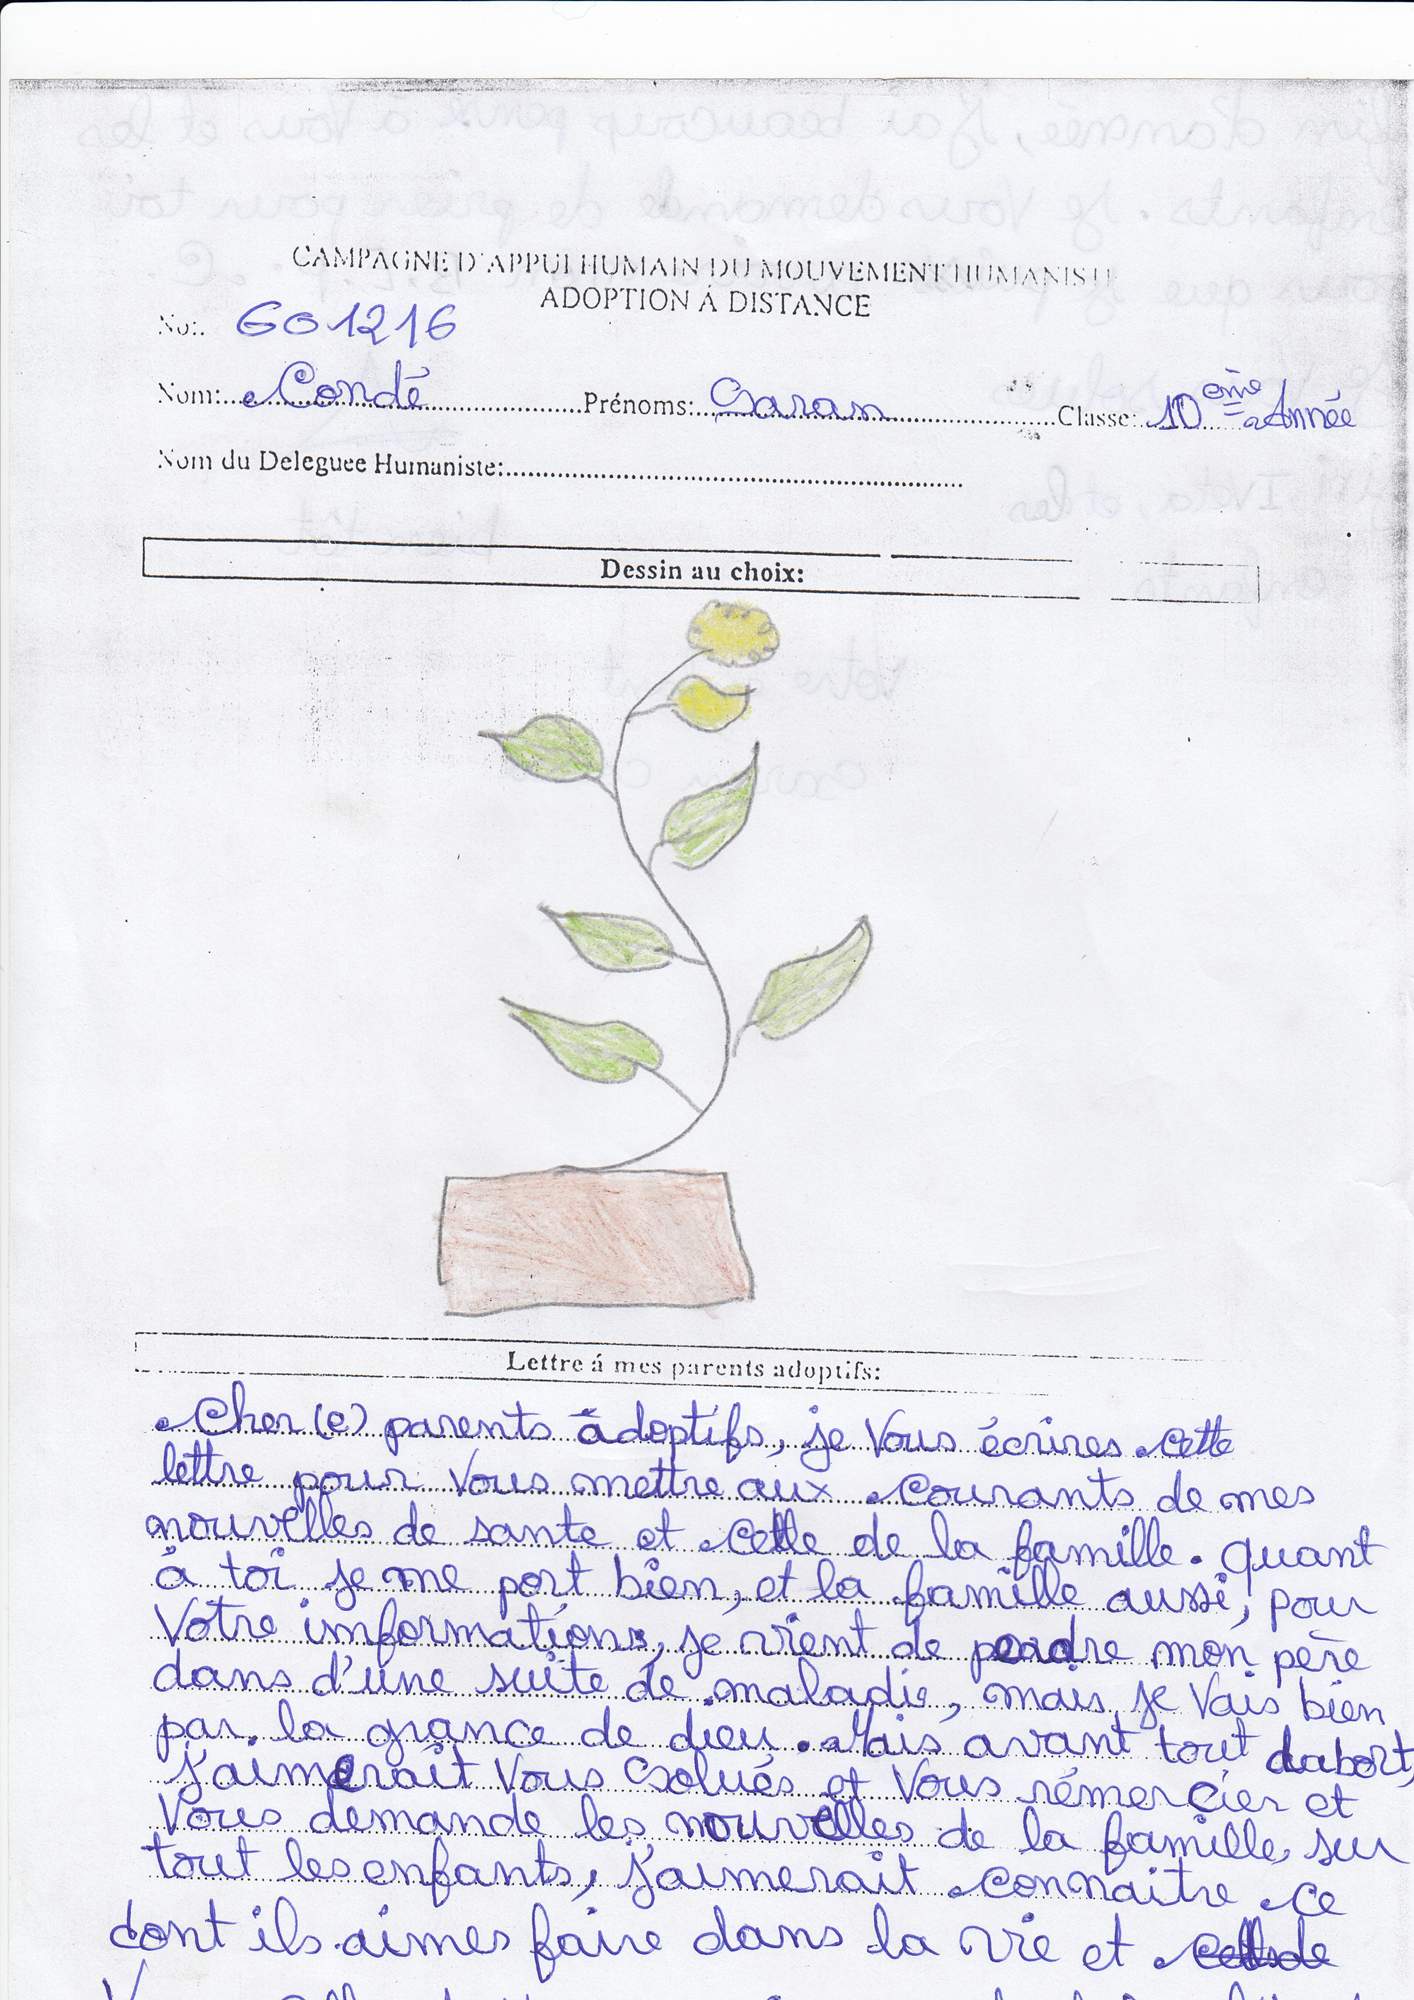 CAMPAGNE D'APPUI HUMAIN DU MOUVEMENT HUMANISTE
ADOPTION Á DISTANCE
No:. GO1216
Nom: Condé Prénoms: Saran Classe: 10ème Année
Nom du Deleguee Humaniste:
Dessin au choix:
Lettre á mes parents adoptifs:
Cher(e) parents adoptifs, je vous écrires cette
lettre pour vous mettre aux courants de mes
nouvelles de sante et celle de la famille. quant
à toi je me port bien, et la famille aussi, pour
votre imformations, je vient de perdre mon père
dans d'une suite de maladie, mais je vais bien
par la grance de dieu. Mais avant tout dabort,
j'aimerait vous salués et vous rémercier et
vous demande les nouvelles de la famille, sur
tout les enfants, j'aimerait connaitre ce
dont ils aimes faire dans la vie et